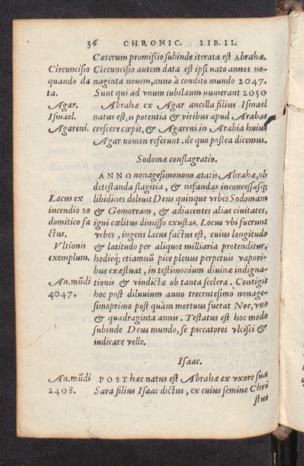 36 CHRONIC. LIB. II.
Cæterum promissio subinde iterata est Abrahæ.
Circuncisio Circuncisio autem data est ipsi nato annos no-
quando da naginta nouem, anno à condito mundo 2047.
ta. Sunt qui ad vnum iubilæum numerant 2050
Agar. Abrahæ ex Agar ancilla filius Ismael
Ismael. natus est, is potentia & viribus apud Arabas
Agareni. crescere cœpit, & Agareni in Arabia huius
Agar nomen referunt, de quo postea dicemus.
Sodomæ conflagratio.
ANNO nonagesimonono ætatis Abrahæ, ob
detestanda flagitia, & nefandas inconcessasq;
Lacus ex libidines deleuit Deus quinque vrbes Sodomam
incendio so & Gomorram, & adiacentes alias ciuitates,
domitico fa igni cœlitus dimisso exustas. Locus vbi fuerunt
ctus. vrbes, ingens lacus factus est, cuius longitudo
Vltionis & latitudo per aliquot milliaria protenditur,
exemplum. hodieq; etiamnũ pice plenus perpetuis vapori-
bus exæstuat, in testimonium diuinæ indigna-
An.mũdi tionis & vindictæ ob tanta scelera. Contigit
4047. hoc post diluuium anno trecentesimo nonage-
simoprimo post quàm mortuus fuerat Noe, vno
& quadraginta annis. Testatus est hoc modo
subinde Deus mundo, se peccatores vlcisci &
iudicare velle.
Isaac.
An.mũdi POST hæc natus est Abrahæ ex vxore sua
2408. Sara filius Isaac dictus, ex cuius semine Chri
stus